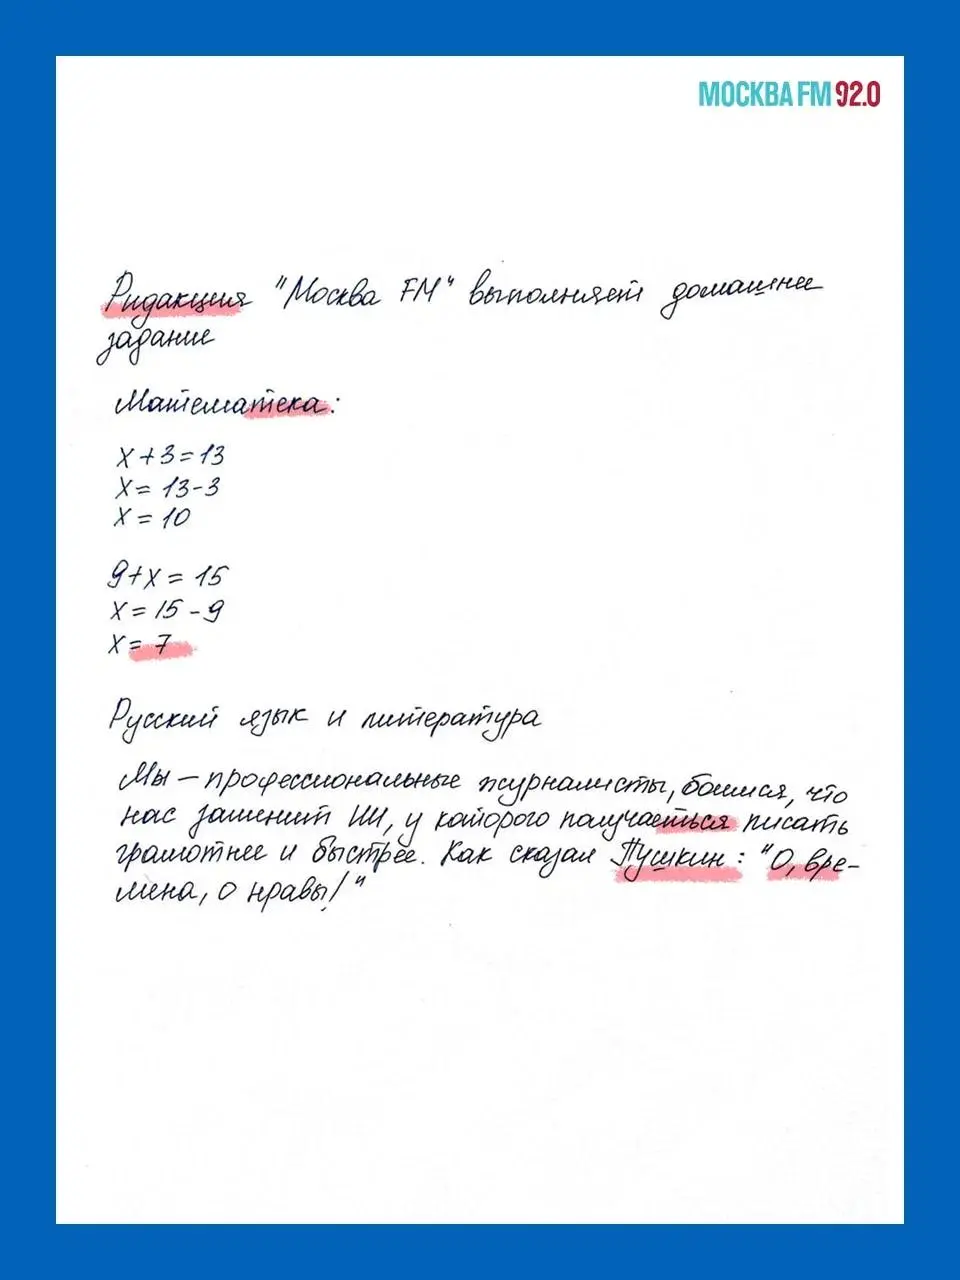 МОСКВА FM 92.0
Ридакция "Москва FM" выполняет домашнее
задание
Математека:
x+3=13
x= 13-3
x = 10
9+x = 15
x = 15 - 9
x = 7
Русский язык и литература
Мы – профессиональные журналисты, боимся, что
нас заменит ИИ, у которого получаеться писать
грамотнее и быстрее. Как сказал Пушкин: "О, вре-
мена, о нравы!"